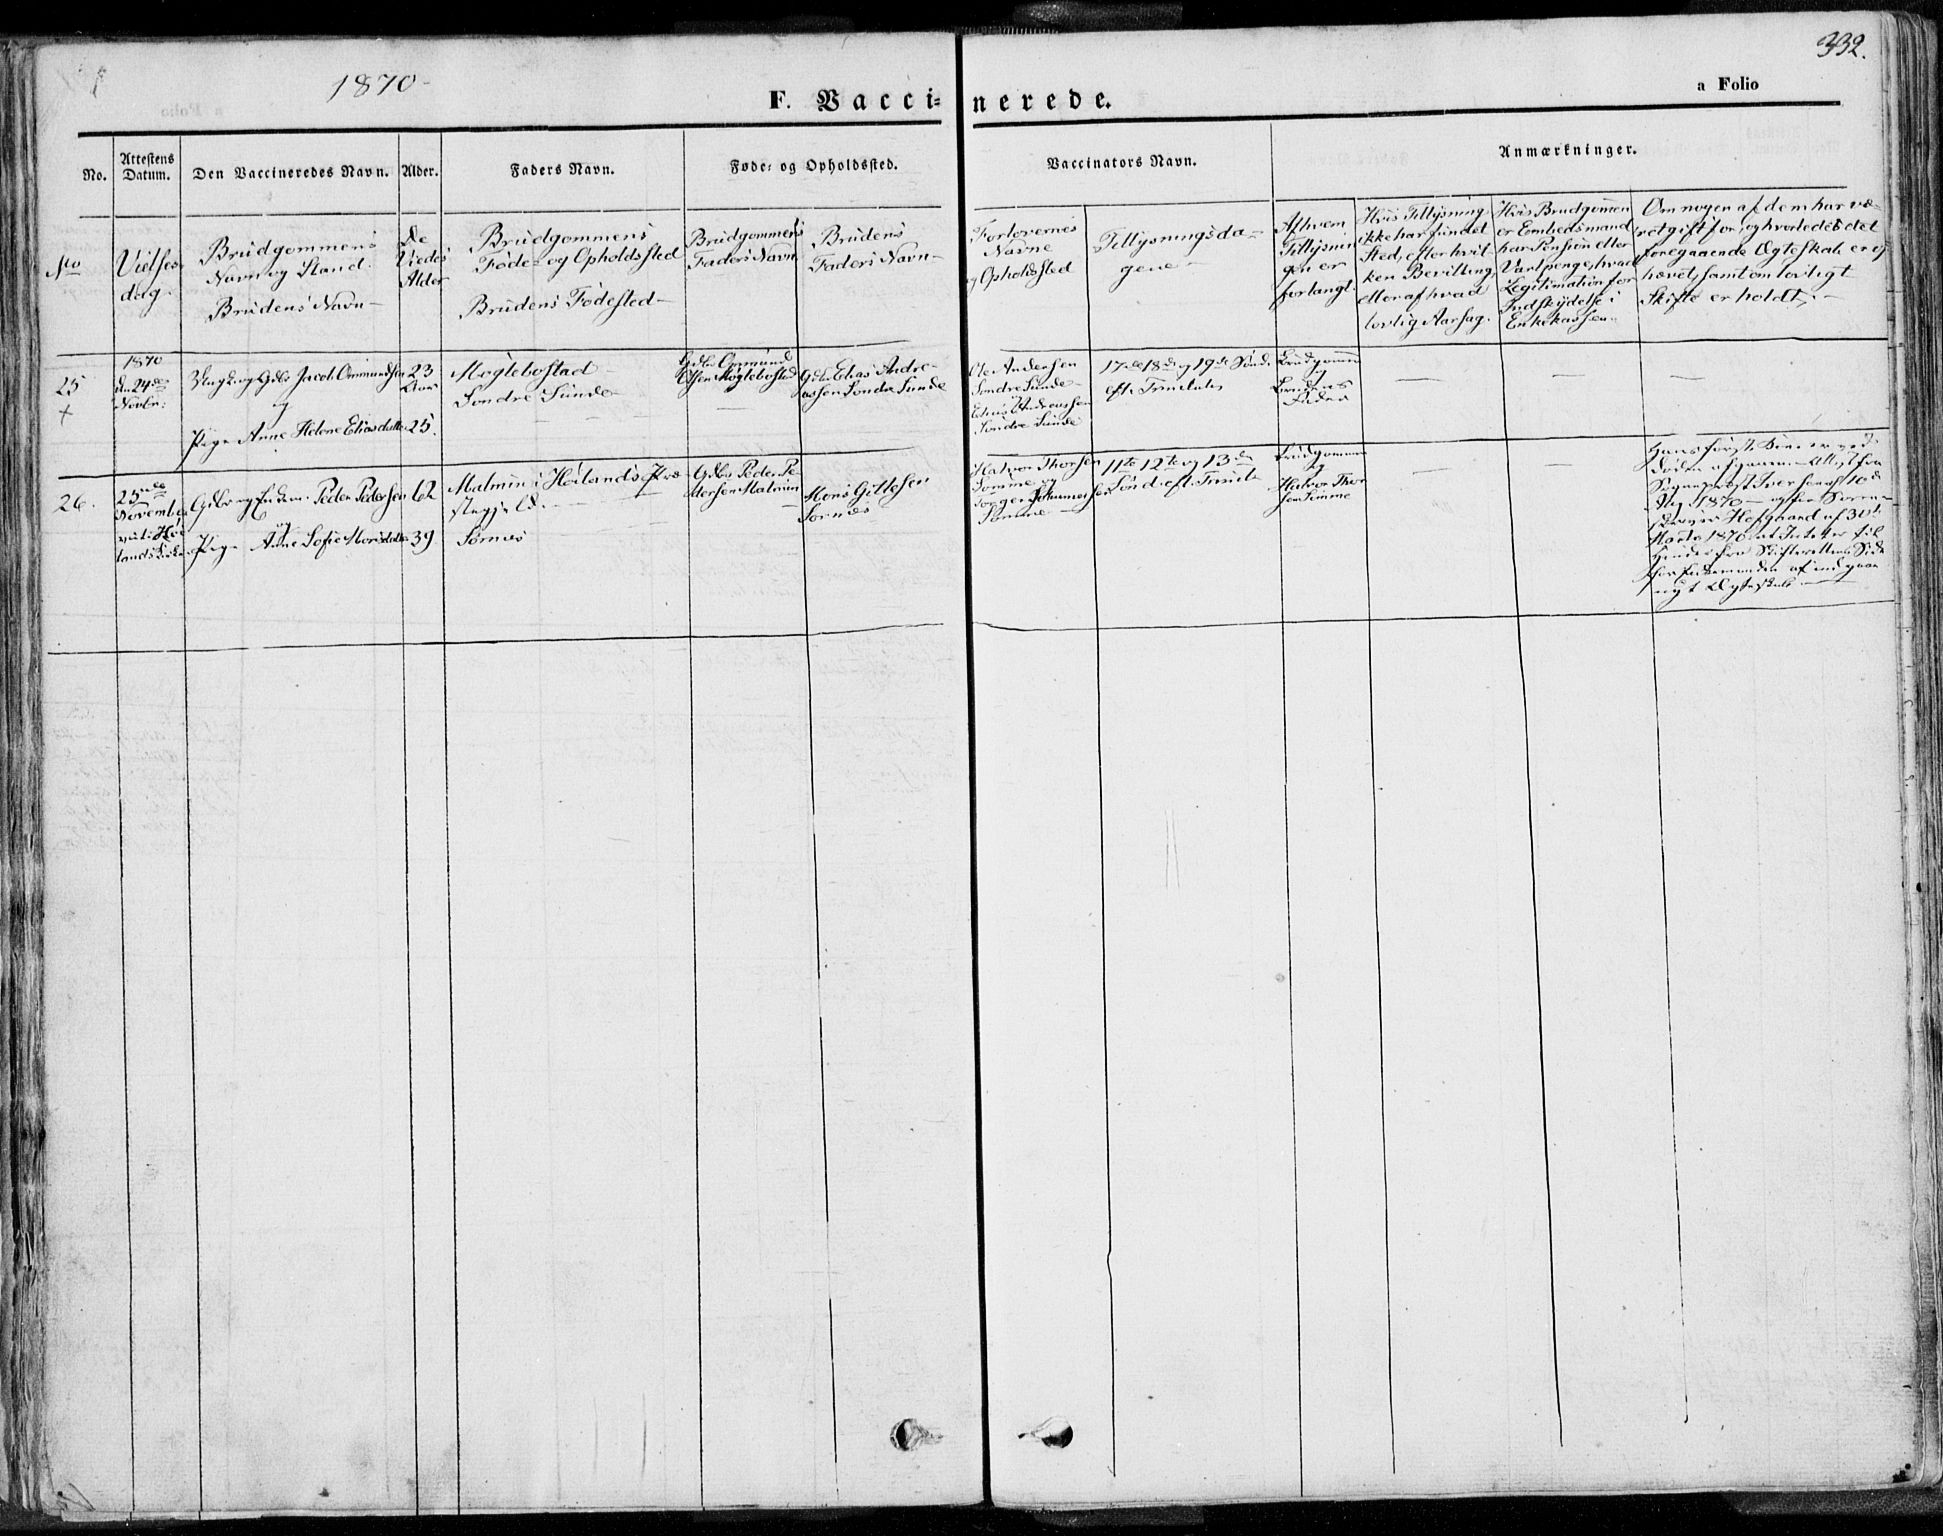 332.
1870-
a Folio
F. Vacci=
nerede.
No.
Attestens
Datum.
Den Vaccineredes Navn.
Alder.
Faders Navn.
Føde- og Opholdssted.
Vaccinators Navn.
Anmærkninger.
No
Vielses
dag.
Brudgommens
Navn og Stand.
Brudens Navn-
De
Viedes
Alder
Brudgommens
Føde- og Opholdssted
Brudens Fødested-
Brudgommens
Faders Navn
Brudens
Faders Navn-
Forlovernes
Navne
og Opholdssted
Tillysningsda-
gene-
Af hvem
Tillysnin
gen er
forlangt.
Hvis Tillysning
ikke har fundet
Sted, efter hvil-
ken Bevilling
eller af hvad
lovlig Aarsag.
Hvis Brudgommen
er Embedsmand
har Pension eller
Vartpenge, hvad
Legitimation for
Indskydelse i
Enkekassen-
Om nogen af dem har væ-
ret gift før, og hvorledes det
foregaaende Ægteskab er op
hævet, samt om lovligt
Skifte er holdt.-
25
+
1870
den 24de
Novbr:
Ungk. og Gdbr Jacob Ommundsen
og
Pige Anne Helene Eliasdatter
23
Aar
25.
Møglebostad-
Søndre Sunde-
Gdbr Ommund
Olsen Møglebostad
Gdbr Elias Andre-
assen Søndre Sunde
Ole Andersen
Søndre Sunde-
Elias Andreassen
Søndre Sunde
17de 18de og 19de Sønd.
eft. Trinitatis
Brudgommen
og
Brudens
Fader
26.
25nde
November
viet i Høi
lands Kirke
Gdbr og Enkem. Peder Pedersen
og
Pige Anne Sofie Monsdatter
62
39
Malmin i Høilands Præ
stegjeld.-
Sørnes
Gdbr Peder Pe-
dersen Malmin
Mons Gittesen
Sørnes
Halvor Thorsen
Sømme og
Johannessen
Sømme-
11te 12te og 13de
Sønd. eft. Trinit.
Brudgommen
og
Halvor Thor
sen Sømme
Hans første Kone er ved
Døden afgaaen-Attest fra
Sogneprest Iversen af 10de
Aug 1870- og fra Soren-
skriver Hofgaard af 30te
Marts 1870 at Intet er til
Hinder fra Skifterettens Side
for Enkemanden at indgaae
nyt Ægteskab.-